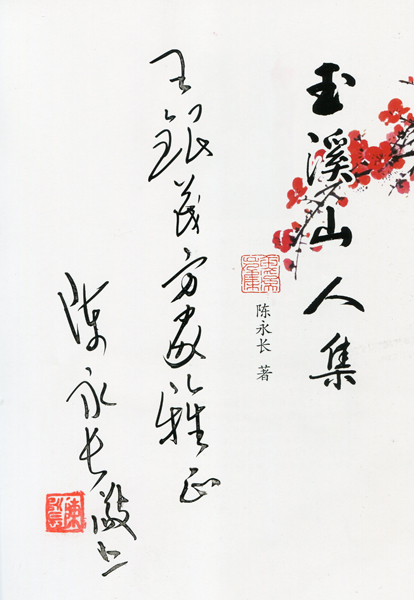 玉溪山人集
陈永长 著
王银茂方家雅正
陈永长敬上